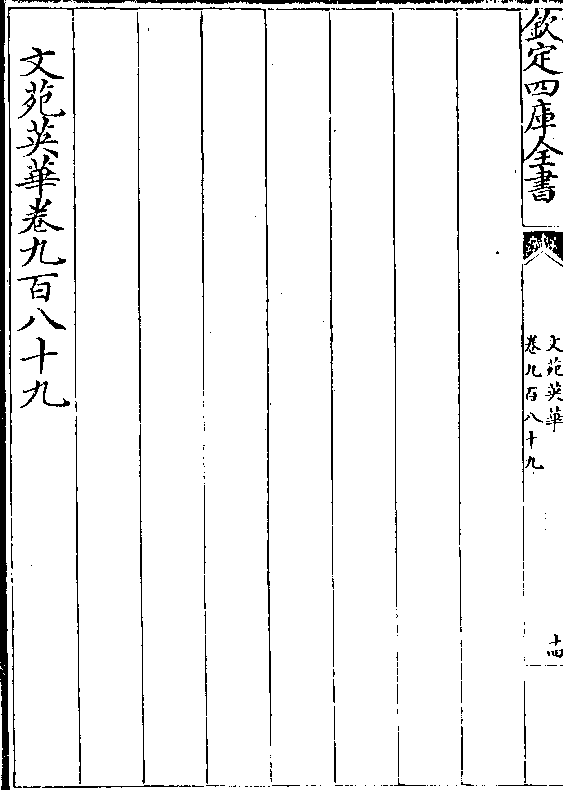 欽定四庫全書
文苑英華
卷九百八十九
十四
文苑英華卷九百八十九